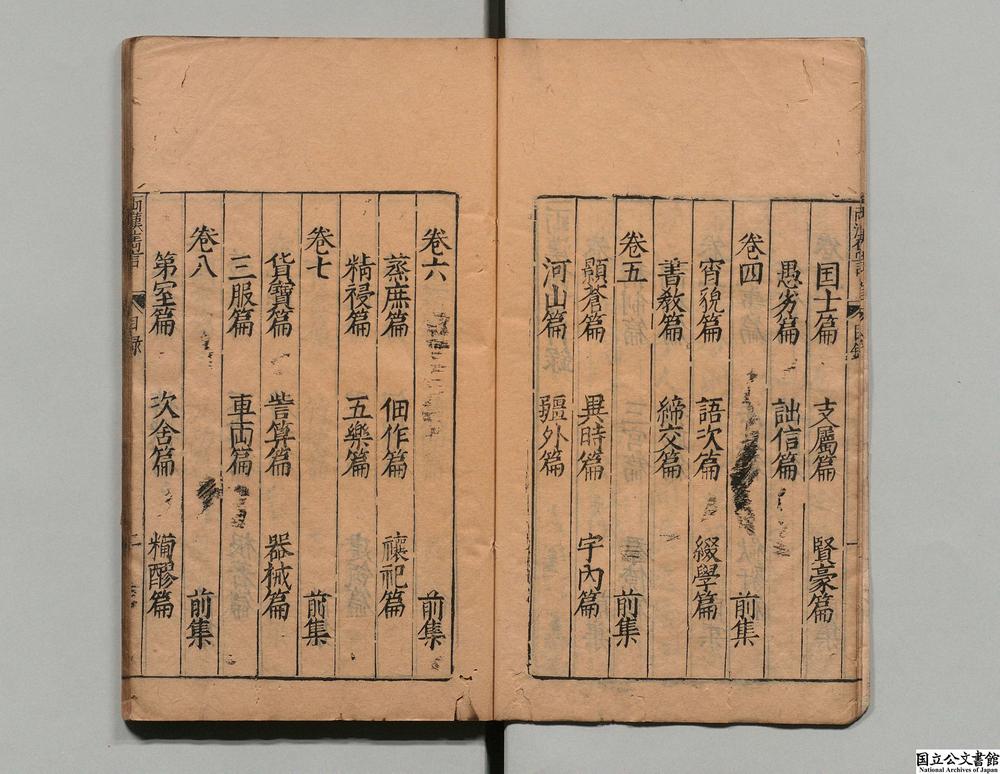 囯士篇 支屬篇 賢豪篇
愚劣篇 詘信篇
卷四 前集
宵貌篇 語次篇 綴學篇
書敎篇 締交篇
卷五 前集
顥蒼篇 異時篇 宇內篇
河山篇 疆外篇
卷六 前集
蒸庶篇 佃作篇 禳祀篇
精祲篇 五樂篇
卷七 前集
貨寶篇 訾算篇 器械篇
三服篇 車両篇
卷八 前集
第室篇 次舍篇 糒醪篇
目錄
二
目錄
一
国立公文書館
National Archives of Japan